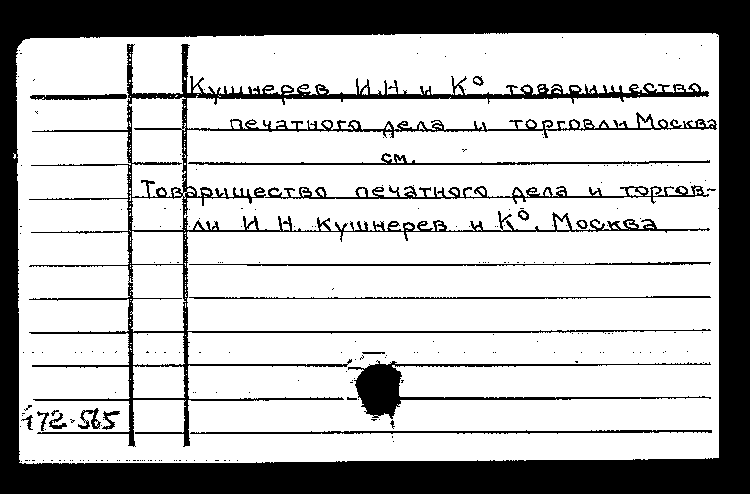 Кушнерев, И.Н. и К°, товарищество
печатного дела и торговли Москва
см.
Товарищество печатного дела и торгов-
ли И. Н. Кушнерев и К°. Москва
472-565